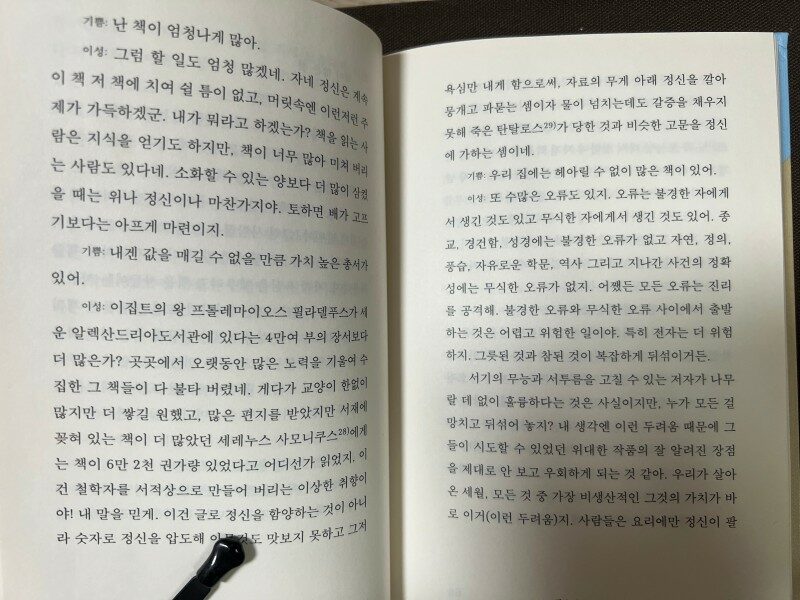 기쁨: 난 책이 엄청나게 많아.
이성: 그럼 할 일도 엄청 많겠네. 자네 정신은 계속
이 책 저 책에 치여 쉴 틈이 없고, 머릿속엔 이런저런 주
제가 가득하겠군. 내가 뭐라고 하겠는가? 책을 읽는 사
람은 지식을 얻기도 하지만, 책이 너무 많아 미쳐 버리
는 사람도 있다네. 소화할 수 있는 양보다 더 많이 삼켰
을 때는 위나 정신이나 마찬가지야. 토하면 배가 고프
기보다는 아프게 마련이지.
기쁨: 내겐 값을 매길 수 없을 만큼 가치 높은 총서가
있어.
이성: 이집트의 왕 프톨레마이오스 필라델푸스가 세
운 알렉산드리아도서관에 있다는 4만여 부의 장서보다
더 많은가? 곳곳에서 오랫동안 많은 노력을 기울여 수
집한 그 책들이 다 불타 버렸네. 게다가 교양이 한없이
많지만 더 쌓길 원했고, 많은 편지를 받았지만 서재에
꽂혀 있는 책이 더 많았던 세레누스 사모니쿠스28)에게
는 책이 6만 2천 권가량 있었다고 어디선가 읽었지. 이
건 철학자를 서적상으로 만들어 버리는 이상한 취향이
야! 내 말을 믿게. 이건 글로 정신을 함양하는 것이 아니
라 숫자로 정신을 압도해 맛보지 못하고 그저
욕심만 내게 함으로써, 자료의 무게 아래 정신을 깔아
뭉개고 파묻는 셈이자 물이 넘치는데도 갈증을 채우지
못해 죽은 탄탈로스29)가 당한 것과 비슷한 고문을 정신
에 가하는 셈이네.
기쁨: 우리 집에는 헤아릴 수 없이 많은 책이 있어.
이성: 또 수많은 오류도 있지. 오류는 불경한 자에게
서 생긴 것도 있고 무식한 자에게서 생긴 것도 있어. 종
교, 경건함, 성경에는 불경한 오류가 없고 자연, 정의,
풍습, 자유로운 학문, 역사 그리고 지나간 사건의 정확
성에는 무식한 오류가 없지. 어쨌든 모든 오류는 진리
를 공격해. 불경한 오류와 무식한 오류 사이에서 출발
하는 것은 어렵고 위험한 일이야. 특히 전자는 더 위험
하지. 그릇된 것과 참된 것이 복잡하게 뒤섞이거든.
서기의 무능과 서투름을 고칠 수 있는 저자가 나무
랄 데 없이 훌륭하다는 것은 사실이지만, 누가 모든 걸
망치고 뒤섞어 놓지? 내 생각엔 이런 두려움 때문에 그
들이 시도할 수 있었던 위대한 작품의 잘 알려진 장점
을 제대로 안 보고 우회하게 되는 것 같아. 우리가 살아
온 세월, 모든 것 중 가장 비생산적인 그것의 가치가 바
로 이거(이런 두려움)지. 사람들은 요리에만 정신이 팔